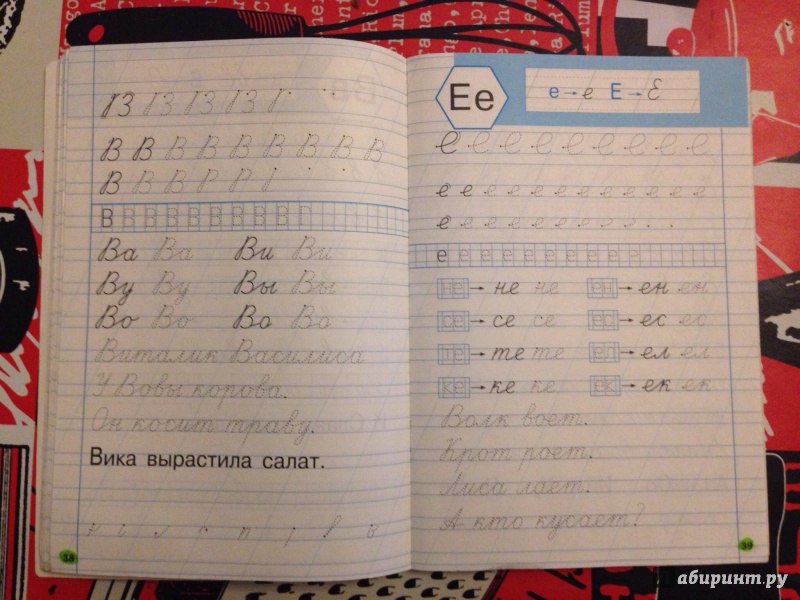 В В В В В В В В В
В В В Р Р Г
В В В В В В В В В
Ва Ва Ви Ви
Ву Ву Вы Вы
Во Во Во Во
Виталик Василиса
У Вовы корова.
Он косит траву.
Вика вырастила салат.
38
Ее
е→е Е→Е
е е е е е е е е е
е е е е е е е е е е е е
е е е е е е е
е е е е е е е е е е
не→не не ен→ен ен
се→се се ес→ес ес
те→те те ел→ел ел
ке→ке ке ек→ек ек
Волк воет.
Крот роет.
Лиса лает.
А кто кусает?
39
абиринт.ру